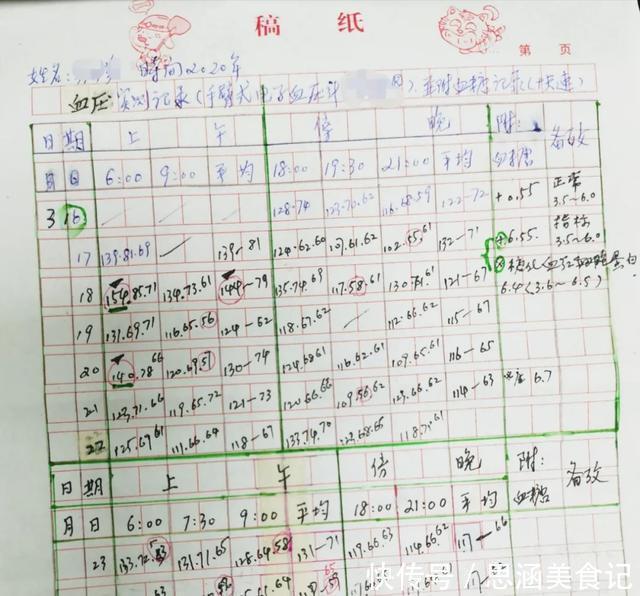 稿 纸
第 页
姓名: 时间2020年
血压实测记录(手臂式电子血压计 ). 并附血糖记录(快速)
日期 上 午 傍 晚 附: 备考
月 日 6:00 9:00 平均 18:00 19:30 21:00 平均 血糖
3 16 / / / 128-74 123.70.62 116.68.59 122-72 +0.55 正常 3.5~6.0
17 139.81.69 / 139-81 124.62.60 107.61.62 102.55.61 132-71 6.55. 指标 3.5~6.0
18 154.85.71 134.73.61 144-79 135.74.69 117.58.61 130.71.61 121-67 糖化血红蛋白
6.4(3.6~6.5)
19 131.69.71 116.65.56 124-62 118.67.62 / 112.66.62 115-67
20 140.78.66 120.69.57 130-74 124.68.61 116.62.61 109.65.61 116-65
21 123.71.66 119.65.72 121-73 120.66.66 109.56.62 123.66.62 114-63 6.7
22 125.67.61 111.66.64 118-67 133.74.70 123.68.65 118.70.61
日期 上 午 傍 晚 附: 备考
月 日 6:00 7:30 9:00 平均 18:00 21:00 平均 血糖
23 133.72.83 131.71.65 128.64.58 131-71 119.66.63 114.66.62 117-66
快传号/思涵美食记